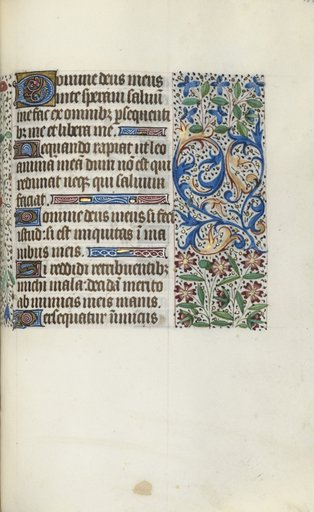 Domine deus meus
in te speravi salvu͞
me fac ex omnibꝫ ꝑsequenti
bꝫ me et libera me.
Nequando rapiat ut leo
anima͞ mea͞ dum no͞ est qui
redimat neqꝫ qui salvum
faciat.
Domine deus meus si feci
istud si est iniquitas i͞ ma
nibus meis.
Si reddidi retribuentibꝫ
michi mala decida͞ merito
ab inimicis meis inanis.
Persequatur i͞nimicus